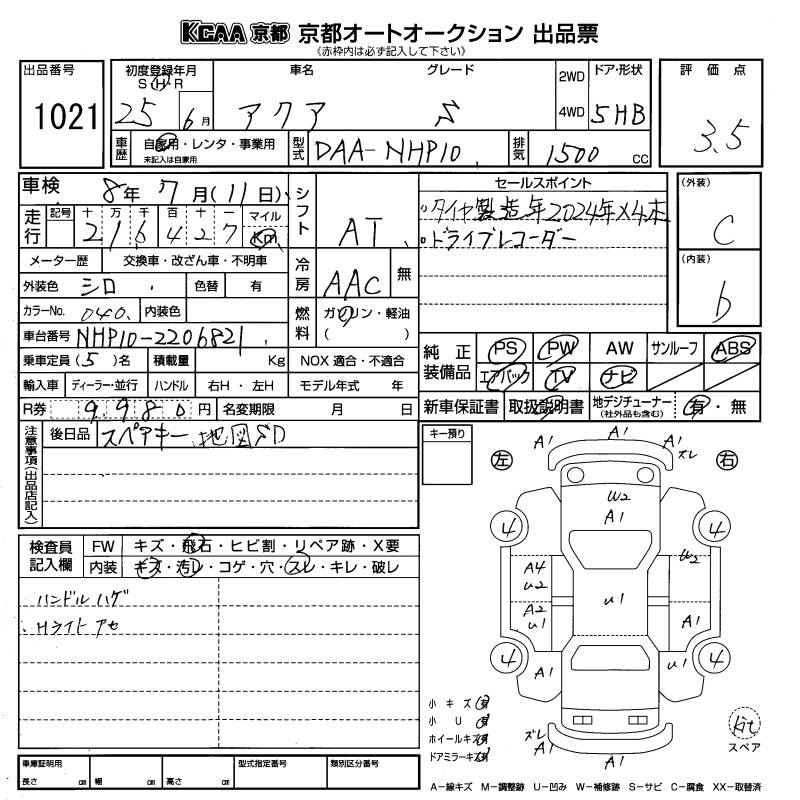 KCAA 京都 京都オートオークション 出品票
《赤枠内は必ず記入して下さい》
出品番号
1021
初度登録年月
S H R
25 6月
車名
アクア
グレード
S
2WD
4WD
ドア・形状
5HB
評価点
3.5
車歴
自家用・レンタ・事業用
未記入は自家用
型式
DAA-NHP10
排気
1500 cc
車検
8年7月(11日)
走行
記号 十 万 千 百 十 一 マイル
216427 Km
シフト
AT
セールスポイント
・タイヤ製造年2024年×4本
・ドライブレコーダー
(外装)
C
(内装)
b
メーター歴 交換車・改ざん車・不明車
外装色 シロ 色替 有
冷房
AAC 無
カラーNo. 040 内装色
燃料
ガソリン・軽油
( )
車台番号 NHP10-2206821
乗車定員(5)名 積載量 Kg NOX 適合・不適合
輸入車 ディーラー・並行 ハンドル 右H・左H モデル年式 年
R券 9980円 名変期限 月 日
純正装備品
PS PW AW サンルーフ ABS
エアバック TV ナビ
新車保証書 取扱説明書 地デジチューナー (社外品も含む) 有・無
注意事項(出品店記入)
後日品 スペアキー 地図SD
キー預り
検査員記入欄
FW キズ・飛石・ヒビ割・リペア跡・X要
内装 キズ・汚レ・コゲ・穴・スレ・キレ・破レ
ハンドルハゲ
Hライトアセ
左 右
A1 A1 A1 ズレ
W2
A1
4 4
A4
U2
W2
U1
A2
U1
A1
4 4
A1 U1
小キズ有
小U有
ホイールキズ有
ドアミラーキズ有
ズレ
A1 A1
Kit
スペア
車庫証明用
長さ cm 幅 cm 高さ cm
型式指定番号
類別区分番号
A-線キズ M-調整跡 U-凹み W-補修跡 S-サビ C-腐食 XX-取替済